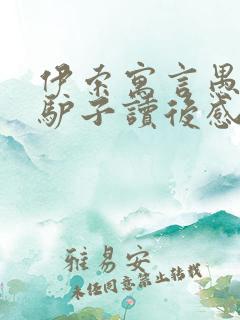 伊索寓言愚
驴子讀後感
雅易安
未经同意禁止转载